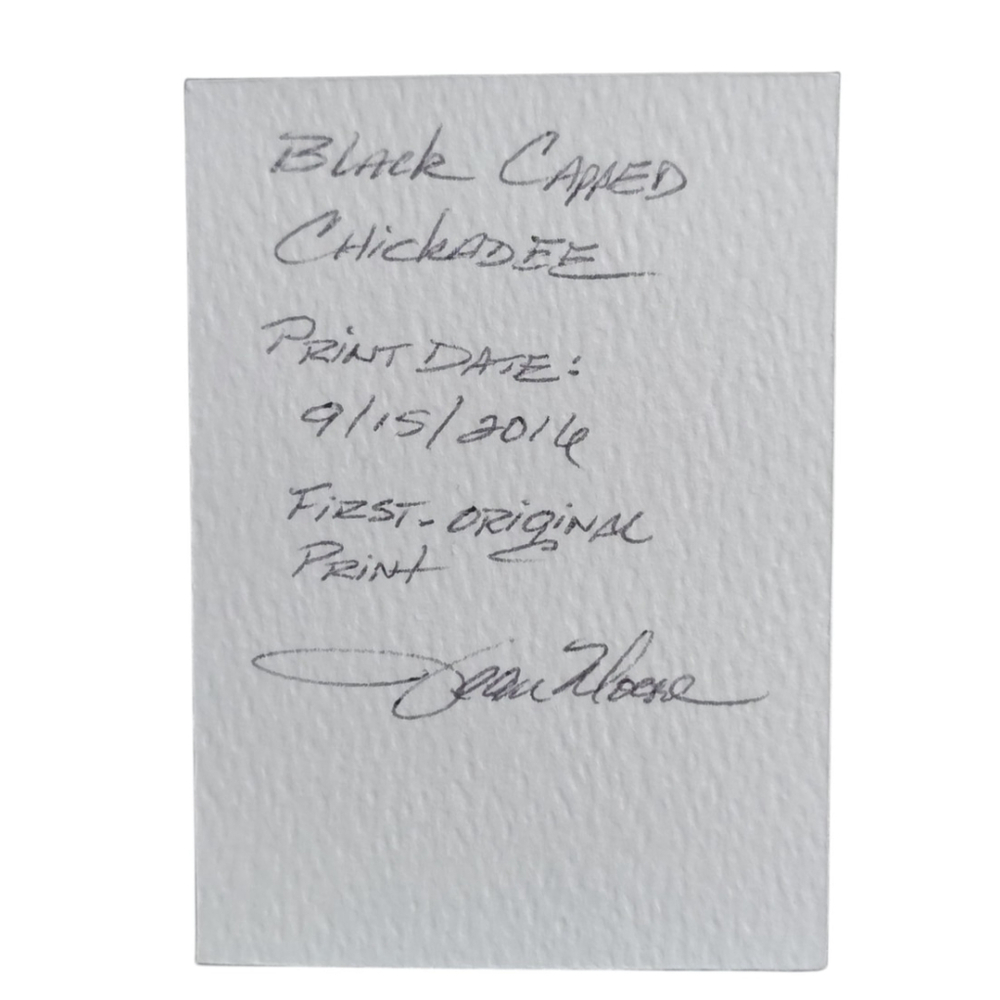 Black Capped
Chickadee
Print Date:
9/15/2016
First-Original
Print
Jean